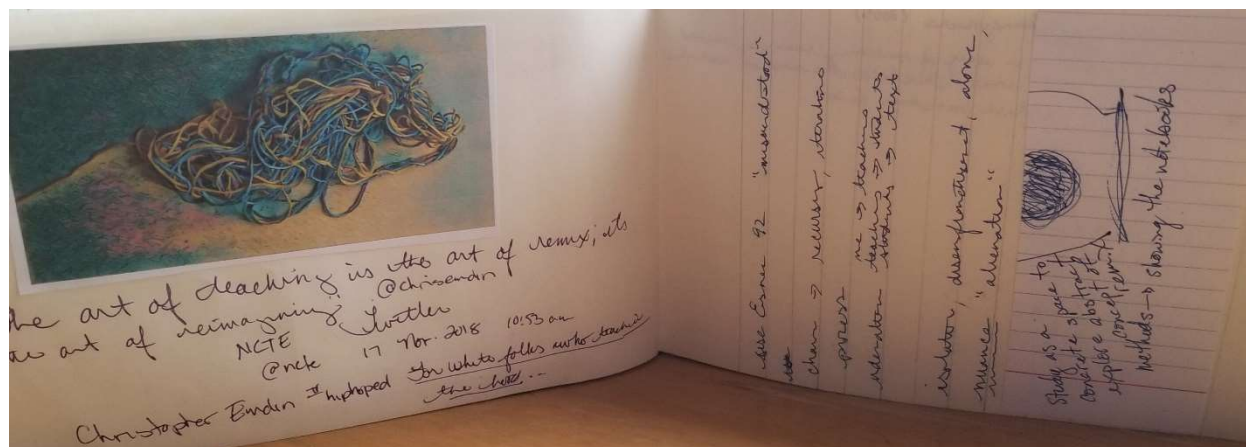 The art of teaching is the art of remix; its
the art of reimagining. @chrisemdin
NCTE Twitter
@ncte 17 Nov. 2018 10:53 am
Christopher Emdin #hiphoped For white folks who teach in
the hood...
use Esnee 92 "misunderstood"
chain → recursion, iterations
process
me → teaching
iteration teaching → students
students → text
isolation, disenfranchisement, alone,
nuance "alienation"
Study as a
concrete space to
explore abstract
concept of
methods → showing the notebooks